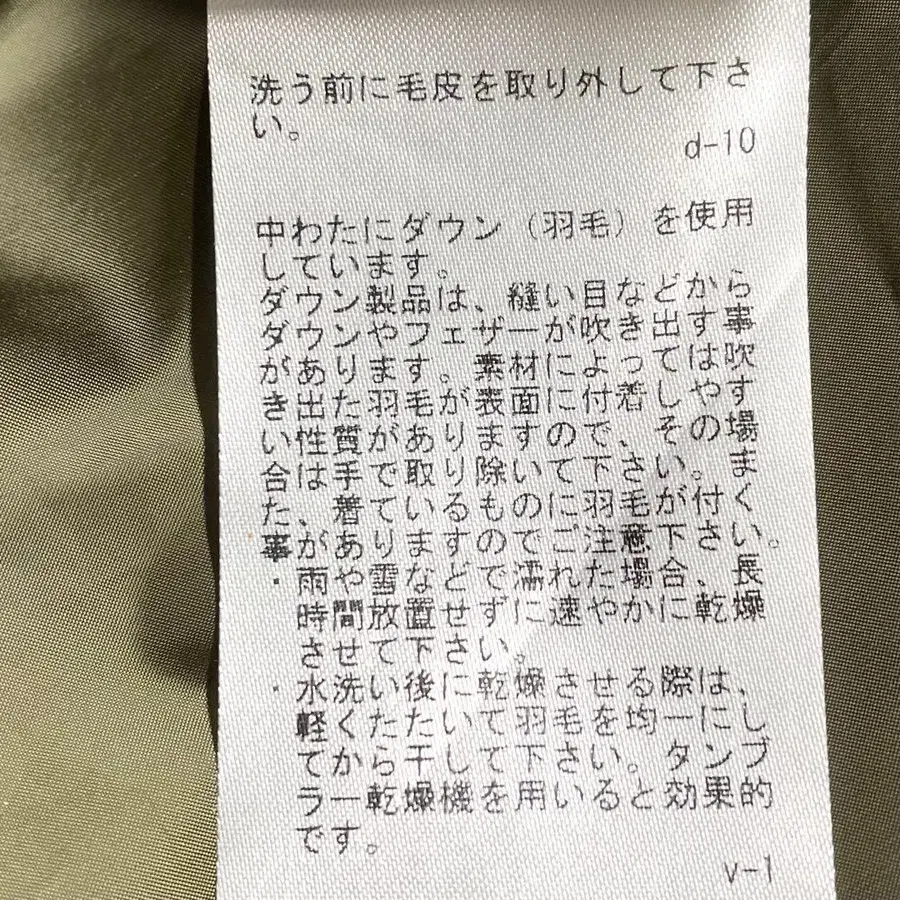 洗う前に毛皮を取り外して下さ
い。
d-10
中わたにダウン（羽毛）を使用
しています。
ダウン製品は、縫い目などから
ダウンやフェザーが吹き出す事
があります。素材によっては吹
き出た羽毛が表面に付着しやす
い性質がありますので、その場
合は手で取り除いて下さい。ま
た、着ているものに羽毛が付く
事がありますのでご注意下さい。
・雨や雪などで濡れた場合、長
時間放置せずに速やかに乾燥
させて下さい。
・水洗い後に乾燥させる際は、
軽くたたいて羽毛を均一にし
てから干して下さい。タンブ
ラー乾燥機を用いると効果的
です。
v-1